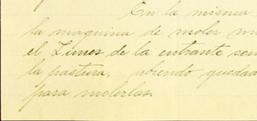 En la misma
la maquina de moler
el Lunes de la entrante
la pastura, abiendo quedado
para molerlas